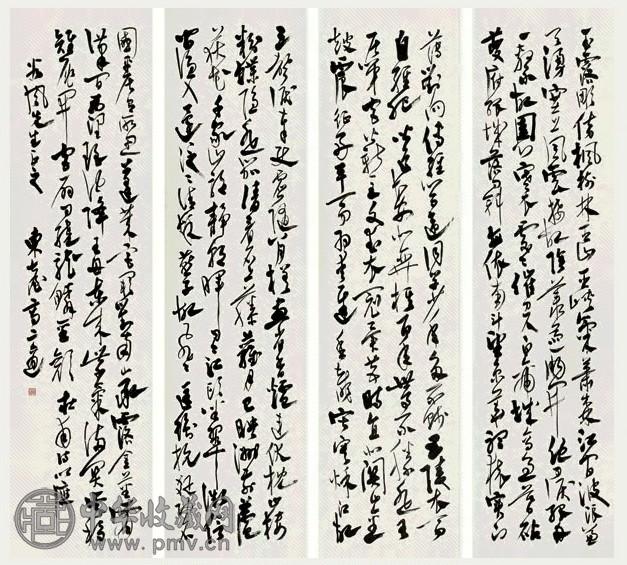 玉露凋伤枫树林巫山巫峡气萧森江间波浪兼
天涌塞上风云接地阴丛菊两开他日泪孤舟
一系故园心寒衣处处催刀尺白帝城高急暮砧
夔府孤城落日斜每依南斗望京华听猿实下
薄刘向传经心事违同学少年多不贱五陵衣马
自轻肥闻道长安似弈棋百年世事不胜悲王
侯第宅皆新主文武衣冠异昔时直北关山金
鼓震征西车马羽书迟鱼龙寂寞秋江冷故
三声泪奉使虚随八月槎画省香炉违伏枕山楼
粉堞隐悲笳请看石上藤萝月已映洲前芦
荻花千家山郭静朝晖日日江楼坐翠微信
宿渔人还泛泛清秋燕子故飞飞匡衡抗疏功名
国平居有所思蓬莱宫阙对南山承露金茎霄
汉间西望瑶池降王母东来紫气满函关云移
雉尾开宫扇日绕龙鳞识圣颜 杜甫诗以应
风先生正之 东台高二适
中华收藏网
www.pmv.cn